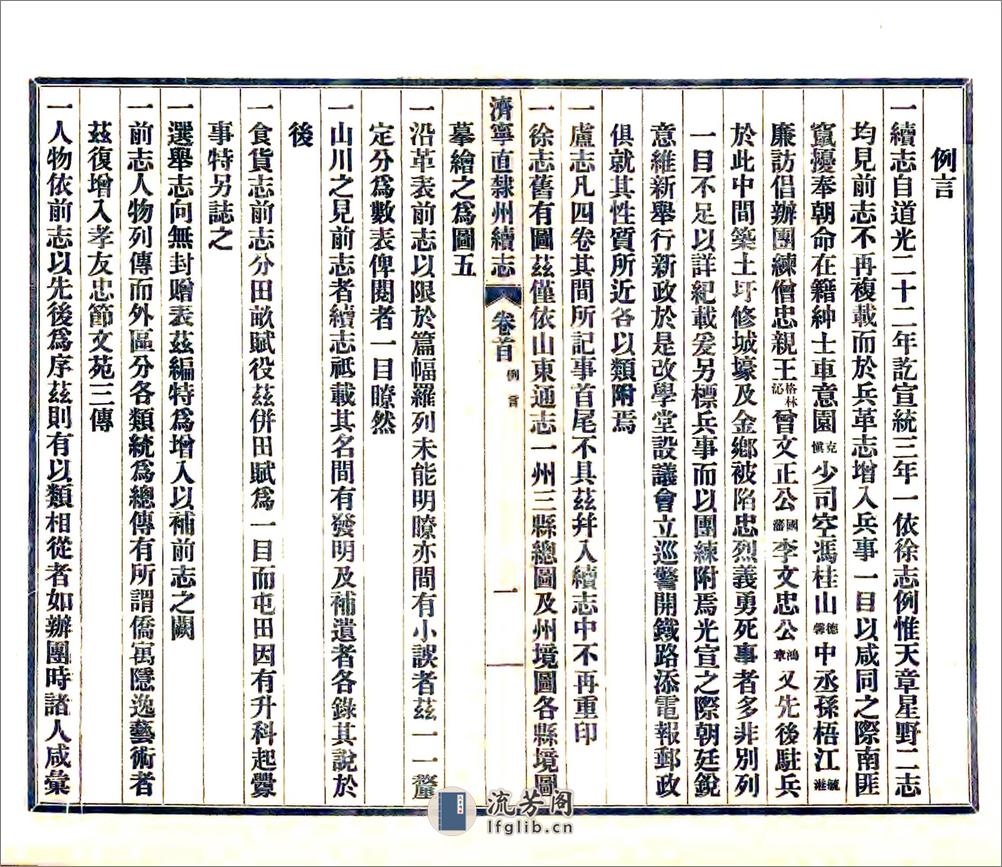 例言
一續志自道光二十二年訖宣統三年一依徐志例惟天章星野二志
均見前志不再複載而於兵革志增入兵事一目以咸同之際南匪
竄擾奉朝命在籍紳士車意園克慎少司空馮桂山德馨中丞孫梧江毓溎
廉訪倡辦團練僧忠親王格林沁曾文正公國藩李文忠公鴻章又先後駐兵
於此中間築土圩修城壕及金鄉被陷忠烈義勇死事者多非別列
一目不足以詳紀載爰另標兵事而以團練附焉光宣之際朝廷銳
意維新舉行新政於是改學堂設議會立巡警開鐵路添電報郵政
俱就其性質所近各以類附焉
一盧志凡四卷其間所記事首尾不具茲幷入續志中不再重印
一徐志舊有圖茲僅依山東通志一州三縣總圖及州境圖各縣境圖
濟寧直隸州續志 卷首 例言 一
摹繪之爲圖五
一沿革表前志以限於篇幅羅列未能明瞭亦間有小誤者茲一一釐
定分爲數表俾閱者一目瞭然
一山川之見前志者續志祗載其名間有發明及補遺者各錄其說於
後
一食貨志前志分田畝賦役茲併田賦爲一目而屯田因有升科起釁
事特另誌之
一選舉志向無封贈表茲編特爲增入以補前志之闕
一前志人物列傳而外區分各類統爲總傳有所謂僑寓隱逸藝術者
茲復增入孝友忠節文苑三傳
一人物依前志以先後爲序茲則有以類相從者如辦團時諸人咸彙
流芳阁
lfglib.cn